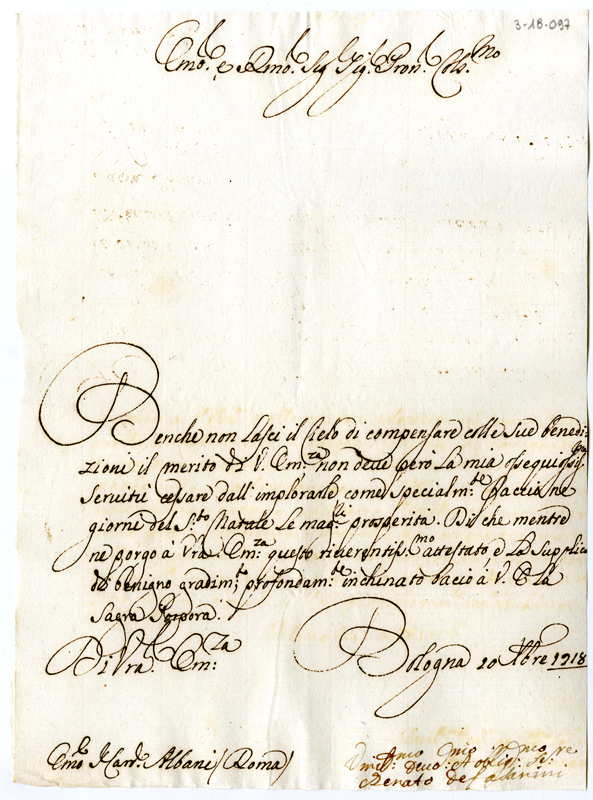 3-18-097
Emo. e Rmo. Sig. Sig. Pron. Col.mo
Benche non lasci il Cielo di compensare colle Sue benedi-
zioni il merito di V. Em.za non deve però la mia ossequiosiss.
servitù cessare dall'implorarle come special.m.te faccio ne
giorni del S.to Natale le mag.li prosperità. Di che mentre
ne porgo à Vra. Em.za questo riverentis.mo attestato e la supplico
di benigno gradim.to profondam.te inchinato bacio à V. E. la
Sagra Porpora.
Di Vra. Em.za
Bologna 20 Xbre 1718
Emo. Card. Albani (Roma)
Umil.mo Devo.mo Oblig.mo Se.re
Renato de